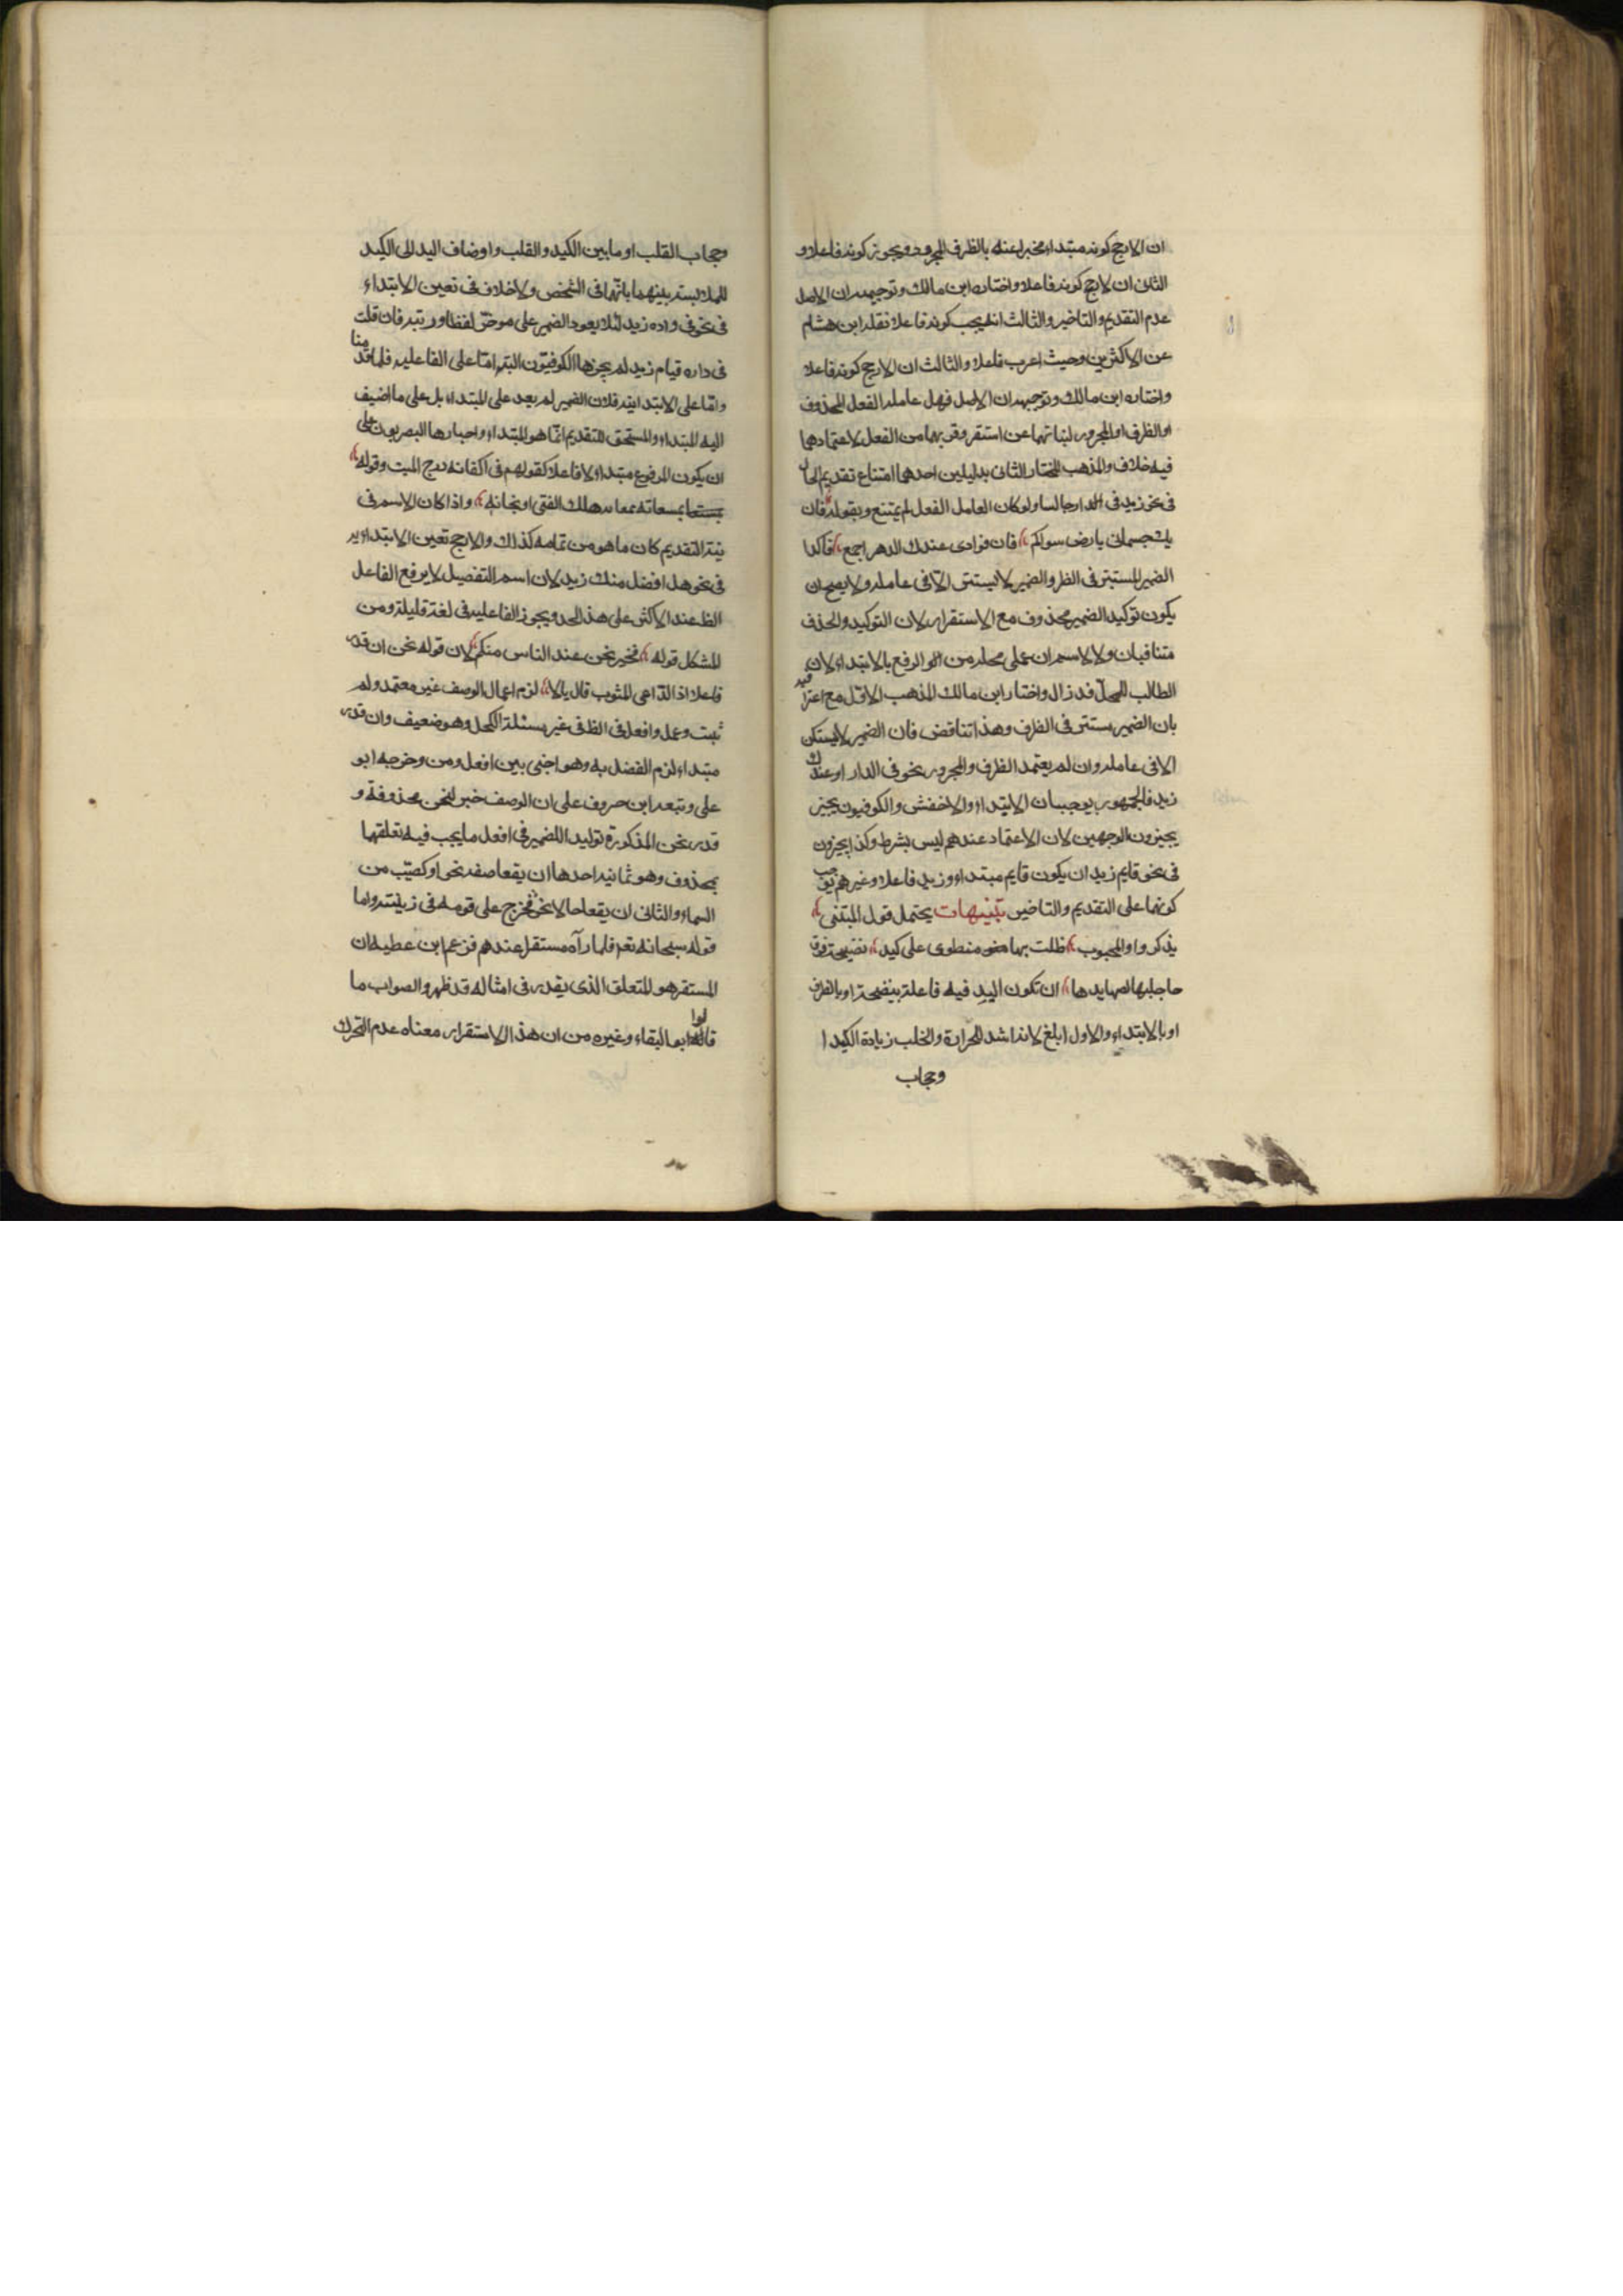 ان الارجح كونه مبتداء مخبرا عنه بالظرف المجرور ويجوز كونه فاعلا و
الثانى ان الارجح كونه فاعلا واختاره ابن مالك وتوجيهه ان الاصل
عدم التقديم والتاخير والثالث انه يجب كونه فاعلا نقله ابن هشام
عن الاكثرين وحيث اعرب فاعلا والثالث ان الارجح كونه فاعلا
واختاره ابن مالك وتوجيهه ان الاصل فهل عامله الفعل المحذوف
او الظرف او المجرور لنيابتهما عن استقر وقربهما من الفعل لاعتمادهما
فيه خلاف والمذهب المختار الثانى بدليلين احدهما امتناع تقديم الحال
فى نحو زيد فى الدار جالسا ولو كان العامل الفعل لم يمتنع وبقوله فان
يك جسمانى بارض سواكم فان فوادى عندك الدهر اجمع فاكدا
الضمير المستتر فى الظر والضمير لا يستتر الا فى عامله ولا يصح ان
يكون توكيد الضمير محذوف مع الاستقرار لان التوكيد والحذف
متنافيان ولا لاسم ان على محله من الو الرفع بالابتداء لان
الطالب للمحل قد زال واختار ابن مالك المذهب الاول مع اعترا فه
بان الضمير مستتر فى الظرف وهذا تناقض فان الضمير لا يستكن
الا فى عامله وان لم يعتمد الظرف والمجرور نحو فى الدار او عندك
زيد فالجمهور يوجبان الابتداء والاخفش والكوفيون يجيز
يجيزون الوجهين لان الاعتماد عندهم ليس بشرط وكذا يجيزون
فى نحو قايم زيد ان يكون قايم مبتداء وزيد فاعلا وغيرهم يوجب
كونهما على التقديم والتاخير تنبيهات يحتمل قول المتنبى
يذكر وا والمحبوب ظلت بها منطوى على كيد نضيجة فوق
حاجلبها لصهايدها ان تكون اليد فيه فاعلة بنضيجة او بالظرف
او بالابتداء والاول ابلغ لانه اشد للحرارة والخلب زيادة الكيد ا
وحجاب
وحجاب القلب او ما بين الكيد والقلب واوضاف اليد الى الكيد
للملابسة بينهما بانهما فى الشخص ولا خلاف فى تعين الابتداء
فى نحو فى داره زيد لئلا يعود الضمير على موخر لفظا ورتبة فان قلت
فى داره قيام زيد لم يجزها الكوفيون البتة اما على الفاعليه فلما قد منا
واما على الابتدائيه فلان الضمير لم يعد على المبتداء بل على ما اضيف
اليه المبتداء والمستحق للتقديم انما هو المبتداء واجازها البصريون على
ان يكون المرفوع مبتداء لا فاعلا كقولهم فى اكفانه درج الميت وقوله
بمسعاته هلك الفتى او نجاته واذا كان الاسم فى
نية التقديم كان ما هو من تمامه كذلك والارجح تعين الابتداءيه
فى نحو هل افضل منك زيد لان اسم التفصيل لا يرفع الفاعل
الظ عند الاكثر على هذا الحد ويجوز الفاعليه فى لغة قليلة ومن
المشكل قوله فخير نحن عند الناس منكم لان قوله نحن ان قدر
فاعلا اذا الداعى المثوب قال يالا لزم اعمال الوصف غير معتمد ولم
ثبت وعمل وافعل فى الظ فى غير مسئلة الكحل وهو ضعيف وان قدر
مبتداء لزم الفصل به وهو اجنبى بين افعل ومن وخرجه ابو
على وتبعه ابن خروف على ان الوصف خبر لنحن محذوفة و
قدر نحن المذكورة توليدا للضمير فى افعل ما يجب فيه تعلقهما
بمحذوف وهو ثمانيه احدها ان يقعا صفة نحو او كصيب من
السماء والثانى ان يقعا حالا نحو فخرج على قومه فى زينته واما
قوله سبحانه تعه فلما رآه مستقرا عندهم فزعم ابن عطيه ان
المستقر هو المتعلق الذى يقدر فى امثاله قد ظهر والصواب ما
قالوا ابو البقاء وغيره من ان هذا الاستقرار معناه عدم التحرك